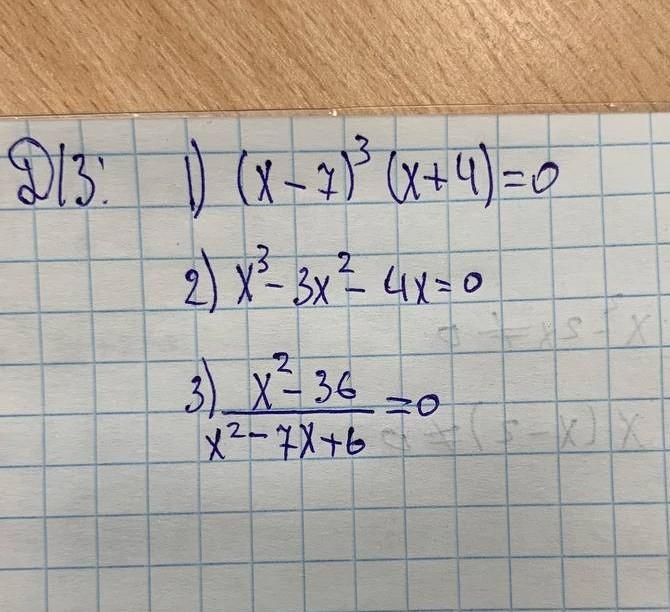 Д/З: 1) (x - 7)³ (x + 4) = 0
2) x³ - 3x² - 4x = 0
3) x² - 36 / x² - 7x + 6 = 0